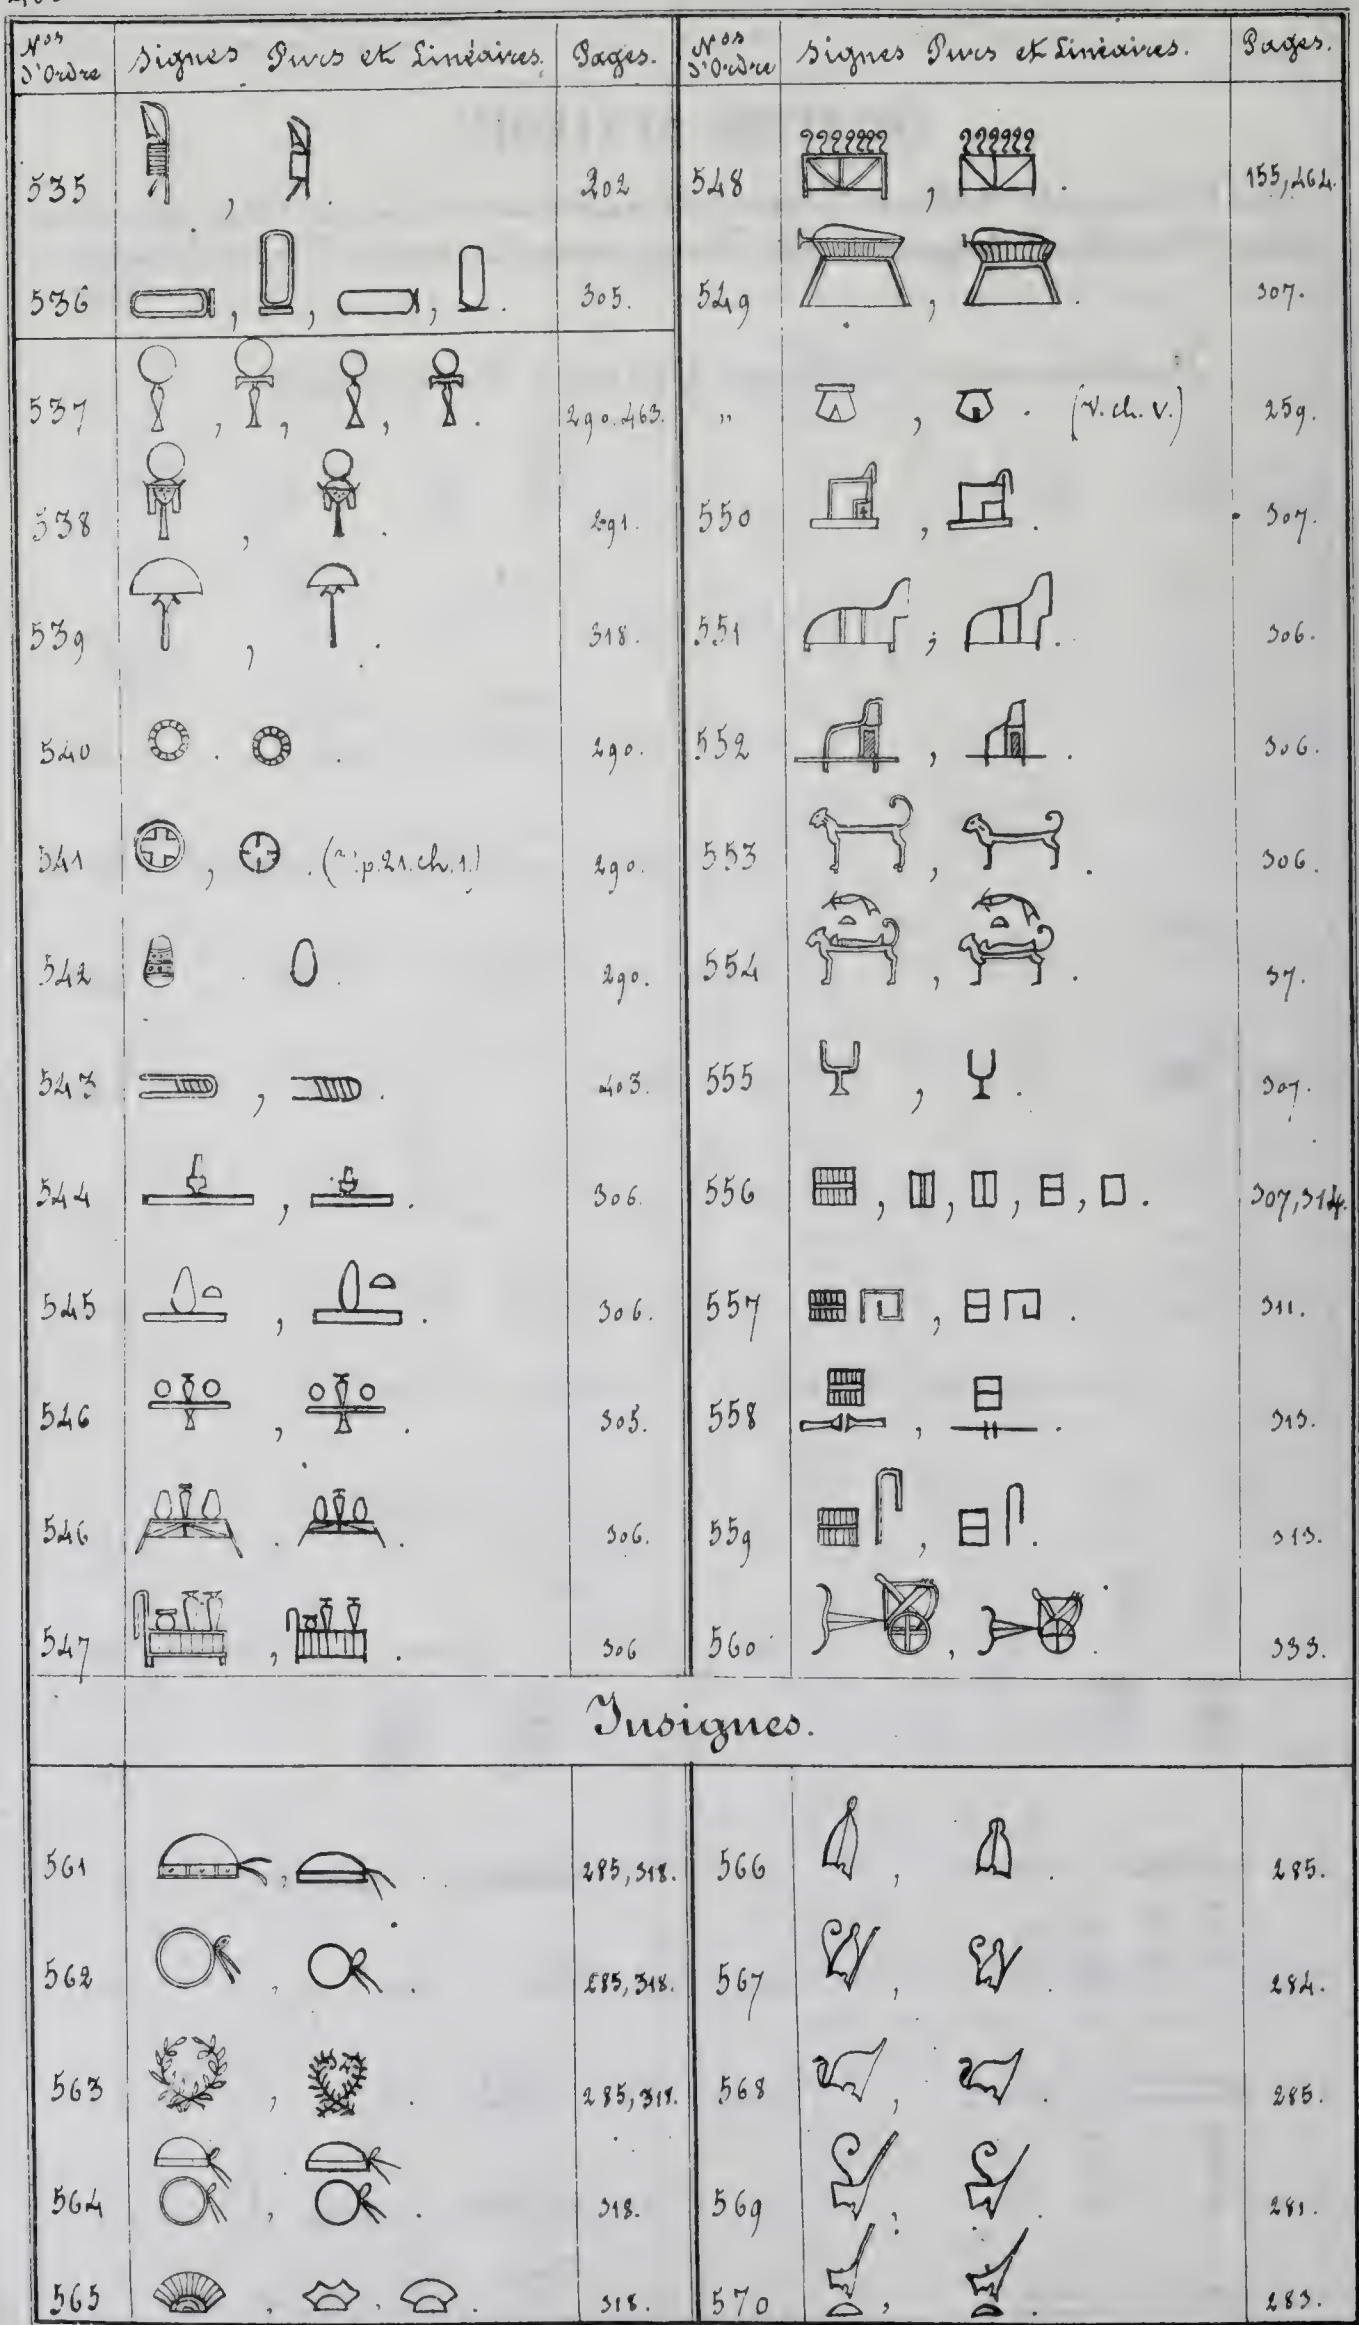 Nos d'Ordre Signes Purs et Linéaires. Pages. Nos d'Ordre Signes Purs et Linéaires. Pages.
535 , . 202 548 , . 155,464.
536 , , , . 305. 549 , . 307.
537 , , , . 290.463. „ , . (v. ch. v.) 259.
538 , . 291. 550 , . 307.
539 , . 318. 551 , . 306.
540 . . 290. 552 , . 306.
541 , . p.21.ch.1.) 290. 553 , . 306.
542 . . 290. 554 , . 37.
543 , . 403. 555 , . 307.
544 , . 306. 556 , , , , . 307,314.
545 , . 306. 557 , . 311.
546 , . 305. 558 , . 313.
546 . . 306. 559 , . 313.
547 , . 306 560 , . 333.
Insignes.
561 , . 285,318. 566 , . 285.
562 , . 285,318. 567 , . 284.
563 , . 285,318. 568 , . 285.
564 , . 318. 569 , . 281.
565 . . . 318. 570 , . 283.